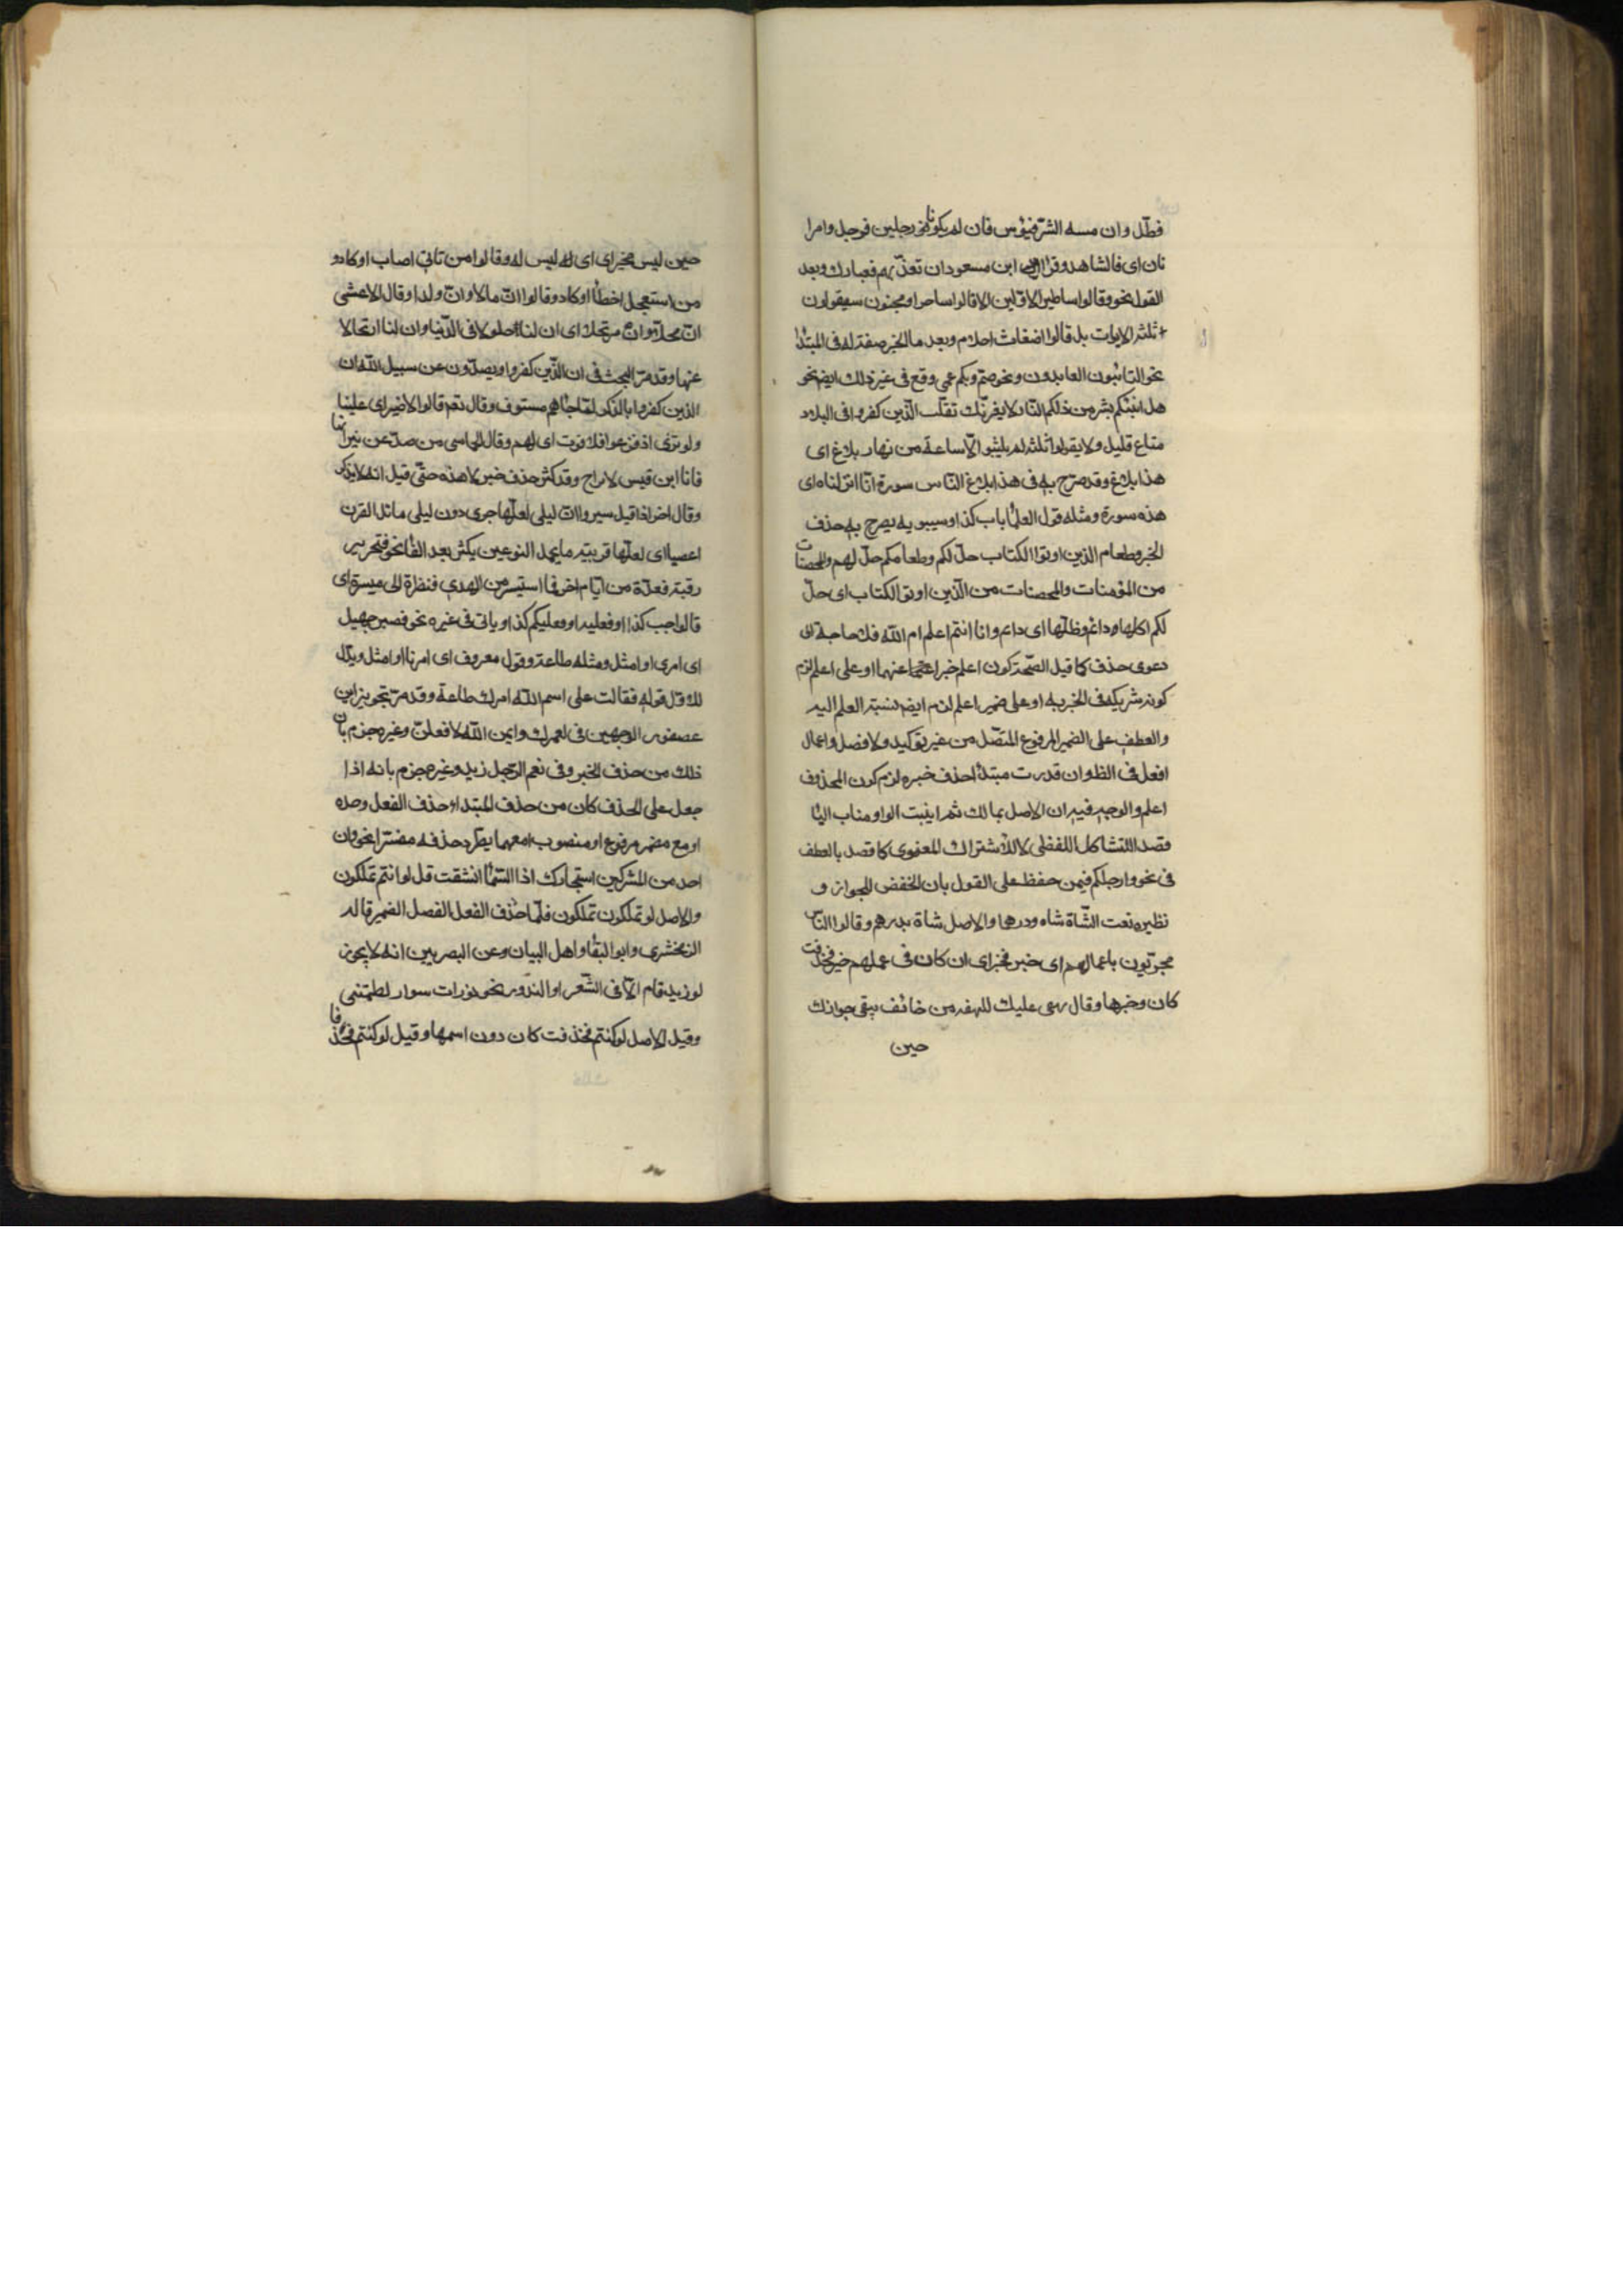 فطلّ وان مسه الشرّ فيؤس فان لم يكونا نحو رجلين فرجل وامرا
تان اى فالشاهد وقرا ابن مسعود ان تعذّبهم فعبادك وبعد
القول نحو وقالوا اساطير الاوّلين الا قالوا ساحر او مجنون سيقولون
ثلثة الايات بل قالوا اضغاث احلام وبعد ما الخبر صفة له فى المبتدا
نحو التائبون العابدون ونحو صمّ وبكم عمى وقع فى غير ذلك ايضا نحو
هل انبئكم بشر من ذلكم النار لا يغرنّك تقلّب الّذين كفروا فى البلاد
متاع قليل ولا يقولوا ثلثة لم يلبثوا الاّ ساعة من نهار بلاغ اى
هذا بلاغ وقد صرّح به فى هذا بلاغ النّاس سورة انّا انزلناه اى
هذه سورة ومثله قول العلما باب كذا وسيبويه يصرح به حذف
الخبر وطعام الذين اوتوا الكتاب حلّ لكم وطعامكم حلّ لهم والمحصنات
من المؤمنات والمحصنات من الّذين اوتوا الكتاب اى حلّ
لكم اكلها دائم وظلّها اى دائم وانا انتم اعلم ام اللّه فلا حاجة الى
دعوى حذف كما قيل الصّحة كون اعلم خبرا عنهما او على اعلم لزم
كونه شريكه فى الخبريه او على ضمير اعلم لزم ايضا نسبة العلم اليه
والعطف على الضمير المرفوع المتّصل من غير توكيد ولا فصل واعمال
افعل فى الظ وان قدرت مبتدأ حذف خبره لزم كون المحذوف
اعلم والوجه فيه ان الاصل بمالك ثم انيبت الواو مناب البا
قصد اللتشاكل اللفظى لا للاشتراك المعنوى كما قصد بالعطف
فى نحو وارجلكم فيمن خفض على القول بان الخفض للجوار و
نظيره نعت الشّاة شاه ودرهما والاصل شاة بدرهم وقالوا الناس
مجزيون باعمالهم اى خير فخير اى ان كان فى عملهم خير فحذفت
كان وخبرها وقال عليك للهفه من خائف يبغى جوارك
حين
حين ليس مجير اى اى له ليس له وقالوا من تانى اصاب او كاد و
من استعجل اخطأ او كاد وقالوا انّ مالا وانّ ولدا وقال الاعشى
انّ محلّا وانّ مرتحلا اى ان لنا حلولا فى الدّنيا وان لنا ارتحالا
عنها وقد مرّ البحث فى ان الّذين كفروا ويصدّون عن سبيل اللّه ان
الذين كفروا بالذكر لمّا جاهم مستوفى وقال نعم قالوا لا ضير اى علينا
ولو ترى اذ فزعوا فلا فوت اى لهم وقال الحماسى من صدّ عن نيرانها
فانا ابن قيس لا براح وقد كثر حذف خبر لا هذه حتّى قيل انه لا يذكر
وقال اخر اذا قيل سيروا انّ ليلى لعلّها جرى دون ليلى مائل القرن
اعضب اى لعلّها قريبة ما يحمل النوعين يكثر بعد الفا نحو فتحرير
رقبة فعدّة من ايّام اخر فما استيسر من الهدى فنظرة الى ميسرة اى
قالواجب كذا او فعليه او فعليكم كذا وياتى فى غيره نحو فصبر جميل
اى امرى او امثل ومثله طاعة وقول معروف اى امرنا او امثل ويدل
للاول قوله فقالت على اسم اللّه امرك طاعة وقد مرّ تجويز ابن
عصفور الوجهين فى لعمرك وايمن اللّه لافعلنّ وغيره جزم بان
ذلك من حذف الخبر وفى نعم الرّجل زيد وغيره جزم بانه اذا
جعل على الحذف كان من حذف المبتدا حذف الفعل وحده
او مع مضمر مرفوع او منصوب او معهما يطّرد حذفه مفسّرا نحو وان
احد من المشركين استجارك اذا السّما انشقت قل لو انتم تملكون
والاصل لو تملكون تملكون فلمّا حذف الفعل انفصل الضمير قاله
الزمخشرى وابو البقا واهل البيان وعن البصريين انه لا يجوز
لو زيد قام الاّ فى الشّعر او الندور نحو لو ذات سوار لطمتنى
وقيل الاصل لو كنتم فحذفت كان دون اسمها وقيل لو كنتم فحذفا